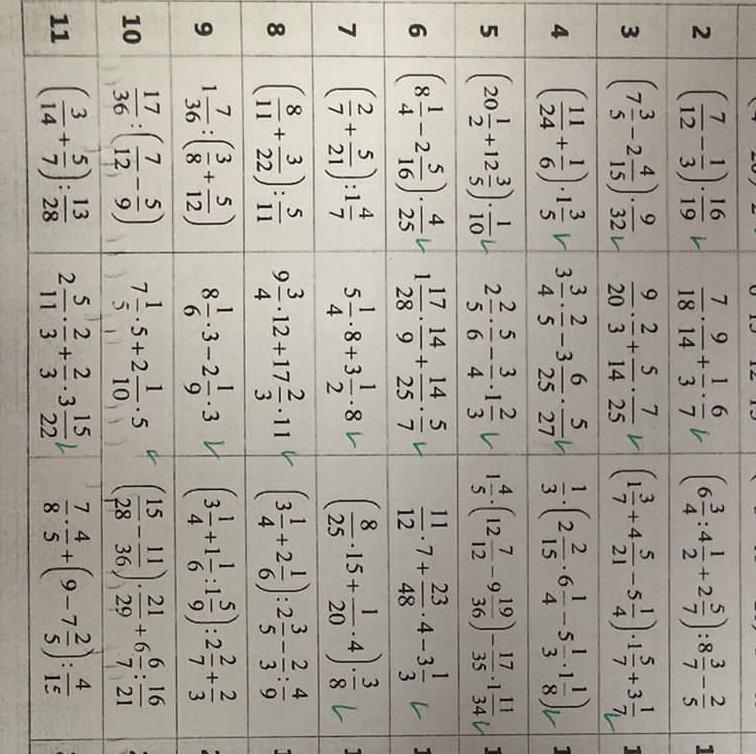 2 (7/12 − 1/3) · 16/19 7/18 · 9/14 + 1/3 · 6/7 (6 3/4 : 4 1/2 + 2 5/7) : 8 3/7 − 2/5
3 (7 3/5 − 2 4/15) · 9/32 9/20 · 2/3 + 5/14 · 7/25 (1 3/7 + 4 5/21 − 5 1/4) · 1 5/7 + 3 1/7
4 (11/24 + 1/6) · 1 3/5 3 3/4 · 2/5 − 3 6/25 · 5/27 1/3 · (2 2/15 · 6 1/4 − 5 1/3 · 1 1/8)
5 (20 1/2 + 12 3/5) · 1/10 2 2/5 · 5/6 − 3/4 · 1 2/3 1 4/5 · (12 7/12 − 9 19/36) − 17/35 · 1 11/34
6 (8 1/4 − 2 5/16) · 4/25 1 17/28 · 14/9 + 14/25 · 5/7 11/12 · 7 + 23/48 · 4 − 3 1/3
7 (2/7 + 5/21) : 1 4/7 5 1/4 · 8 + 3 1/2 · 8 (8/25 · 15 + 1/20 · 4) · 3/8
8 (8/11 + 3/22) : 5/11 9 3/4 · 12 + 17 2/3 · 11 (3 1/4 + 2 1/6) : 2 3/5 − 2/3 : 4/9
9 1 7/36 : (3/8 + 5/12) 8 1/6 · 3 − 2 1/9 · 3 (3 1/4 + 1 1/6 : 1 5/9) : 2 2/7 + 2/3
10 17/36 : (7/12 − 5/9) 7 1/5 · 5 + 2 1/10 · 5 (15/28 − 11/36) · 21/29 + 6 6/7 : 16/21
11 (3/14 + 5/7) : 13/28 2 5/11 · 2/3 + 2/3 · 3 15/22 7/8 · 4/5 + (9 − 7 2/5) : 4/15